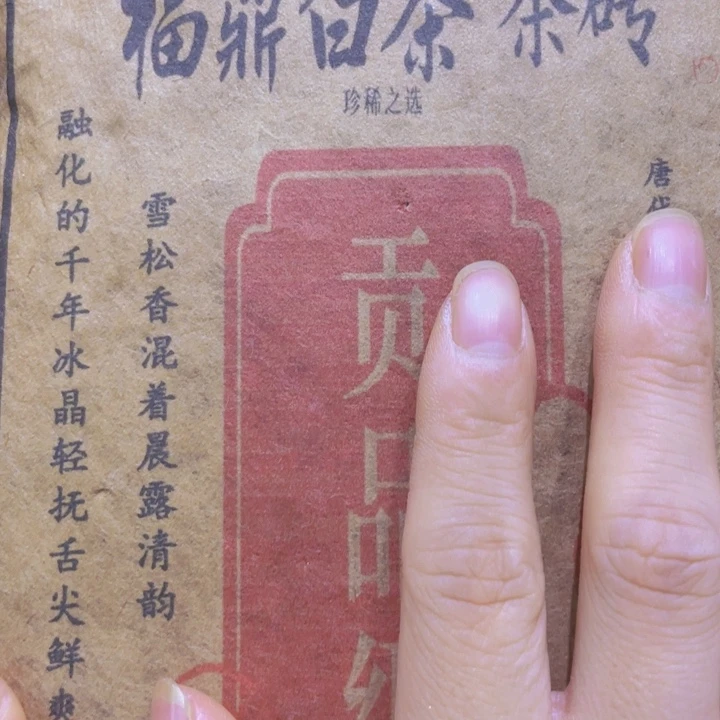 福鼎白茶 茶砖
珍稀之选
唐代
贡品级
雪松香混着晨露清韵
融化的千年冰晶轻抚舌尖鲜爽